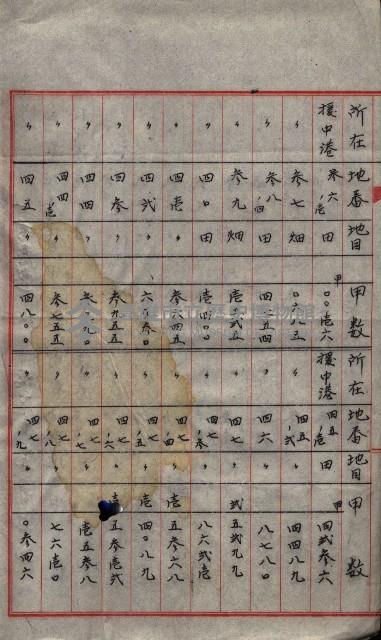 所在 地番 地目 甲数 所在 地番 地目 甲数
援中港 参六ノ壱 田 甲 〇〇壱六 援中港 四五ノ壱 田 甲 四弐参六
〃 参七 畑 〇六八五 〃 四五ノ弐 〃 四四八九
〃 参八ノ四 田 四五四 〃 四六 〃 八七八〇
〃 参九 畑 壱弐五 〃 四七 〃 弐五弐九九
〃 四〇 田 壱四〇 〃 四七ノ参 〃 八六弐壱
〃 四壱 〃 参四四五 〃 四七ノ四 〃 壱五参六八
〃 四弐 〃 六〃参〇 〃 四七ノ五 〃 壱四〇八九
〃 四参 〃 参九五五 〃 四七ノ六 〃 壱五参壱弐
〃 四四 〃 参〃九〇 〃 四七ノ七 〃 壱五参八
〃 四四ノ壱 〃 参七五五 〃 四七ノ八 〃 七六壱〇
〃 四五 〃 四八〇〇 〃 四七ノ九 〃 〇参四六